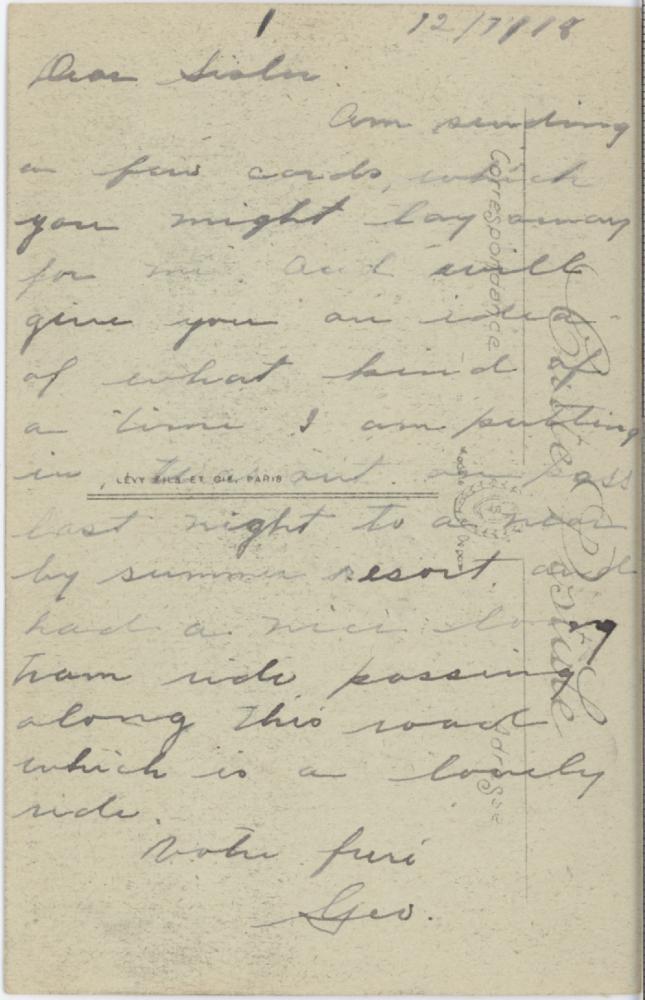 1 12/7/18
Dear Sister
Am sending
a few cards, which
you might lay away
for me. And will
give you an idea
of what kind of
a time I am putting
in, out on pass
last night to a near
by summer resort, and
had a nice long
tram ride passing
along this road
which is a lovely
ride.
Votre frere
Geo.
LÉVY FILS ET CIE, PARIS
Correspondance
Carte Postale
Adresse